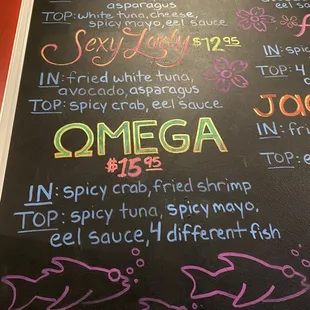 asparagus
TOP: white tuna, cheese,
spicy mayo, eel sauce
Sexy Lady $12.95
IN: fried white tuna,
avocado, asparagus
TOP: spicy crab, eel sauce
ΩMEGA
$15.95
IN: spicy crab, fried shrimp
TOP: spicy tuna, spicy mayo.
eel sauce, 4 different fish
IN: spi
TOP: 4
d
JA
IN: fri
TOP: e